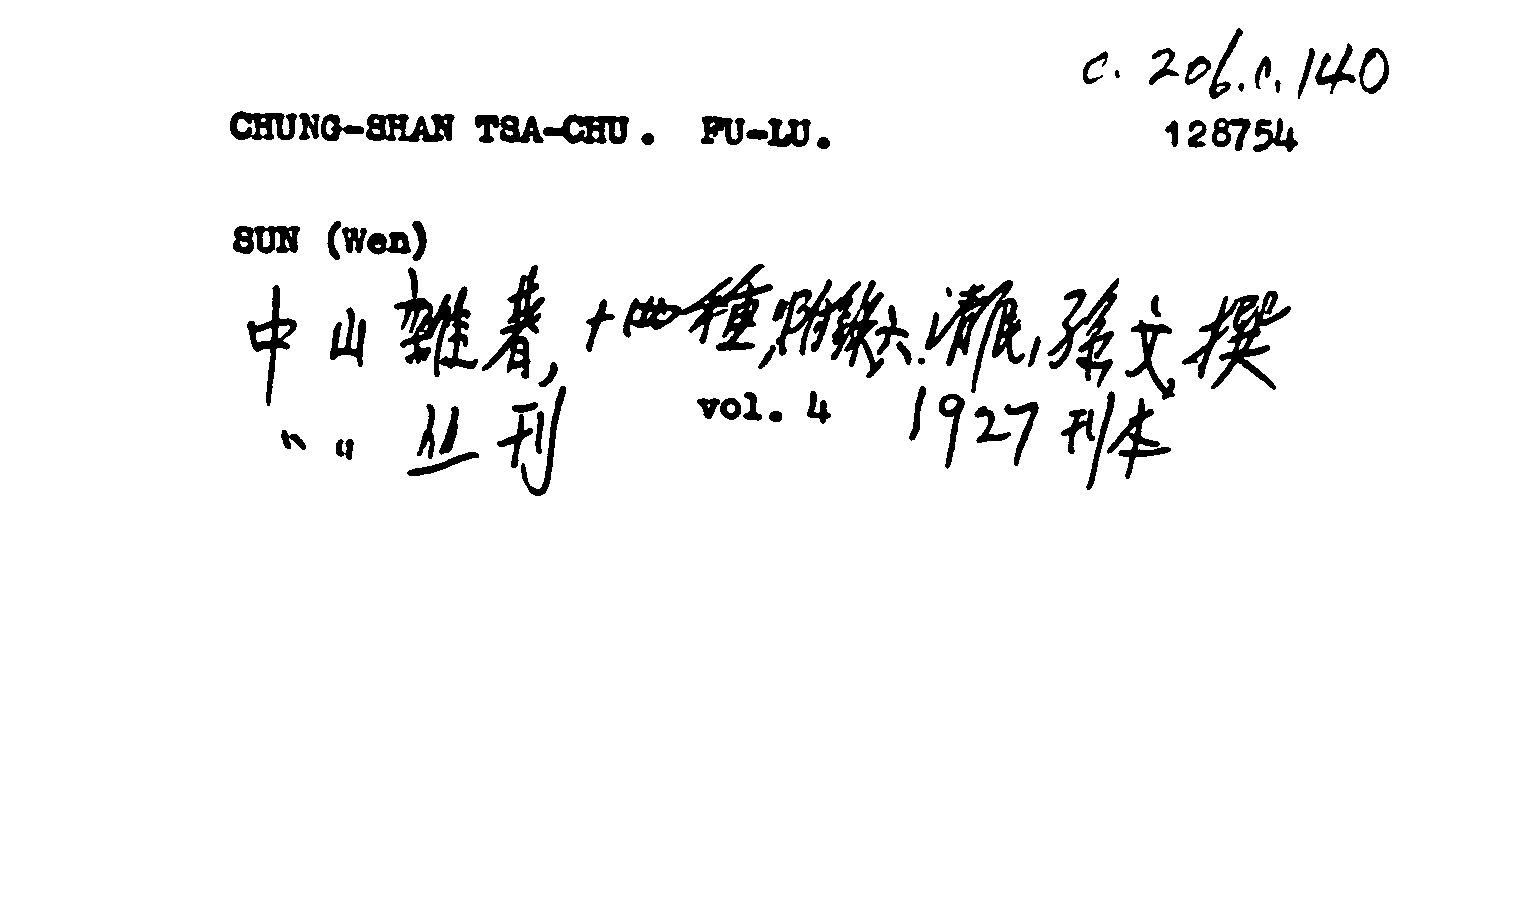 c. 206.c.140
CHUNG-SHAN TSA-CHU. FU-LU.
128754
SUN (Wen)
中山雜著,十四種,附錄六.清,孫文撰
〃 〃 丛刊 vol. 4 1927刊本